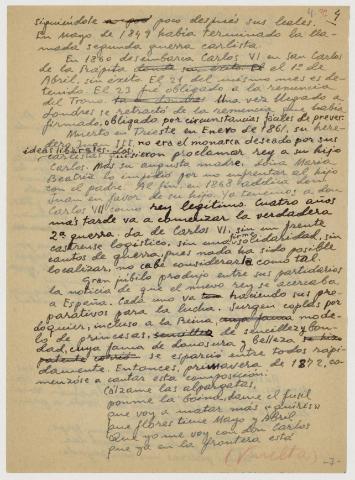 siguiéndole poco después sus leales.
En mayo de 1849 había terminado la lla-
mada segunda guerra carlista.
En 1860 desembarca Carlos VI en San Carlos
de la Rápita el 1º de
Abril, sin éxito. El 21 del mismo mes es de-
tenido. El 23 fue obligado a la renuncia
del Trono. Una vez llegado a
Londres se retractó de la renuncia que había
firmado, obligado por circunstancias fáciles de prever.
Muerto en Trieste en Enero de 1861, su here-
dero Juan III, no era el monarca deseado por sus
ideas liberales. Los
carlistas quisieron proclamar rey a su hijo
Carlos. Mas su augusta madre, doña María
Beatriz lo impidió por no enfrentar al hijo
con el padre. Al fin, en 1868 abdica don
Juan en favor de su hijo. Ya tenemos a don
Carlos VII como rey legítimo. Cuatro años
más tarde va a comenzar la verdadera
2ª guerra. La de Carlos VI, sin un frente
castrense logístico, sin una solidaridad, sin
cantos de guerra, pues nada ha sido posible
localizar, no cabe considerarla como tal.
Gran júbilo produjo entre sus partidarios
la noticia de que el nuevo rey se acercaba
a España. Cada uno va haciendo sus pre-
parativos para la lucha. Surgen coplas por
doquier, incluso a la Reina mode-
lo de princesas, de sencillez y bon-
dad, cuya fama de donosura y belleza
se esparció entre todos rápi-
damente. Entonces, primavera de 1872, co-
menzóse a cantar esta composición:
Cálzame las alpargatas,
ponme la boina, dame el fusil
que voy a matar más guiris
que flores tiene Mayo y Abril
Que yo me voy con don Carlos
que ya en la frontera está
-7-